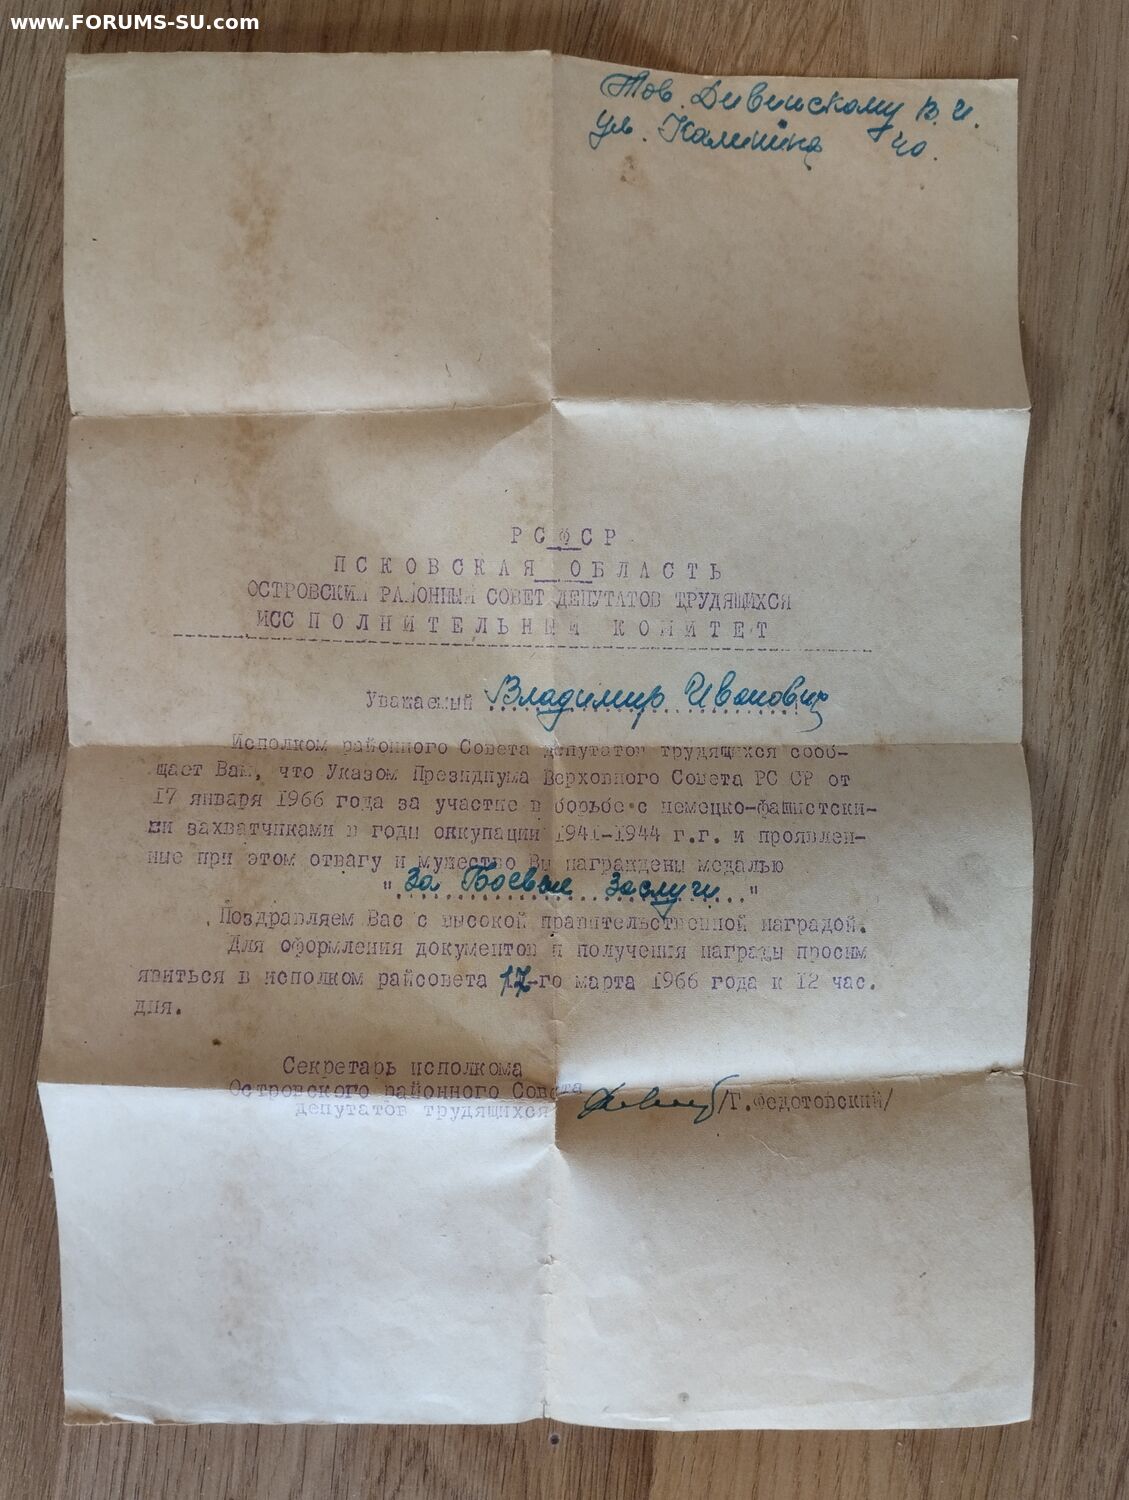 www.FORUMS-SU.com
Тов. Дивинскому В. И.
ул. Калинина 40.
РСФСР
ПСКОВСКАЯ ОБЛАСТЬ
ОСТРОВСКИЙ РАЙОННЫЙ СОВЕТ ДЕПУТАТОВ ТРУДЯЩИХСЯ
ИССПОЛНИТЕЛЬНЫЙ КОМИТЕТ
Уважаемый Владимир Иванович
Исполком районного Совета депутатов трудящихся сооб-
щает Вам, что Указом Президиума Верховного Совета РС СР от
17 января 1966 года за участие в борьбе с немецко-фашистски-
ми захватчиками в годы оккупации 1941-1944 г.г. и проявлен-
ные при этом отвагу и мужество Вы награждены медалью
" За Боевые заслуги "
Поздравляем Вас с высокой правительственной наградой.
Для оформления документов и получения награды просим
явиться в исполком райсовета 17-го марта 1966 года к 12 час.
дня.
Секретарь исполкома
Островского районного Совета
депутатов трудящихся /Г.Федотовский/